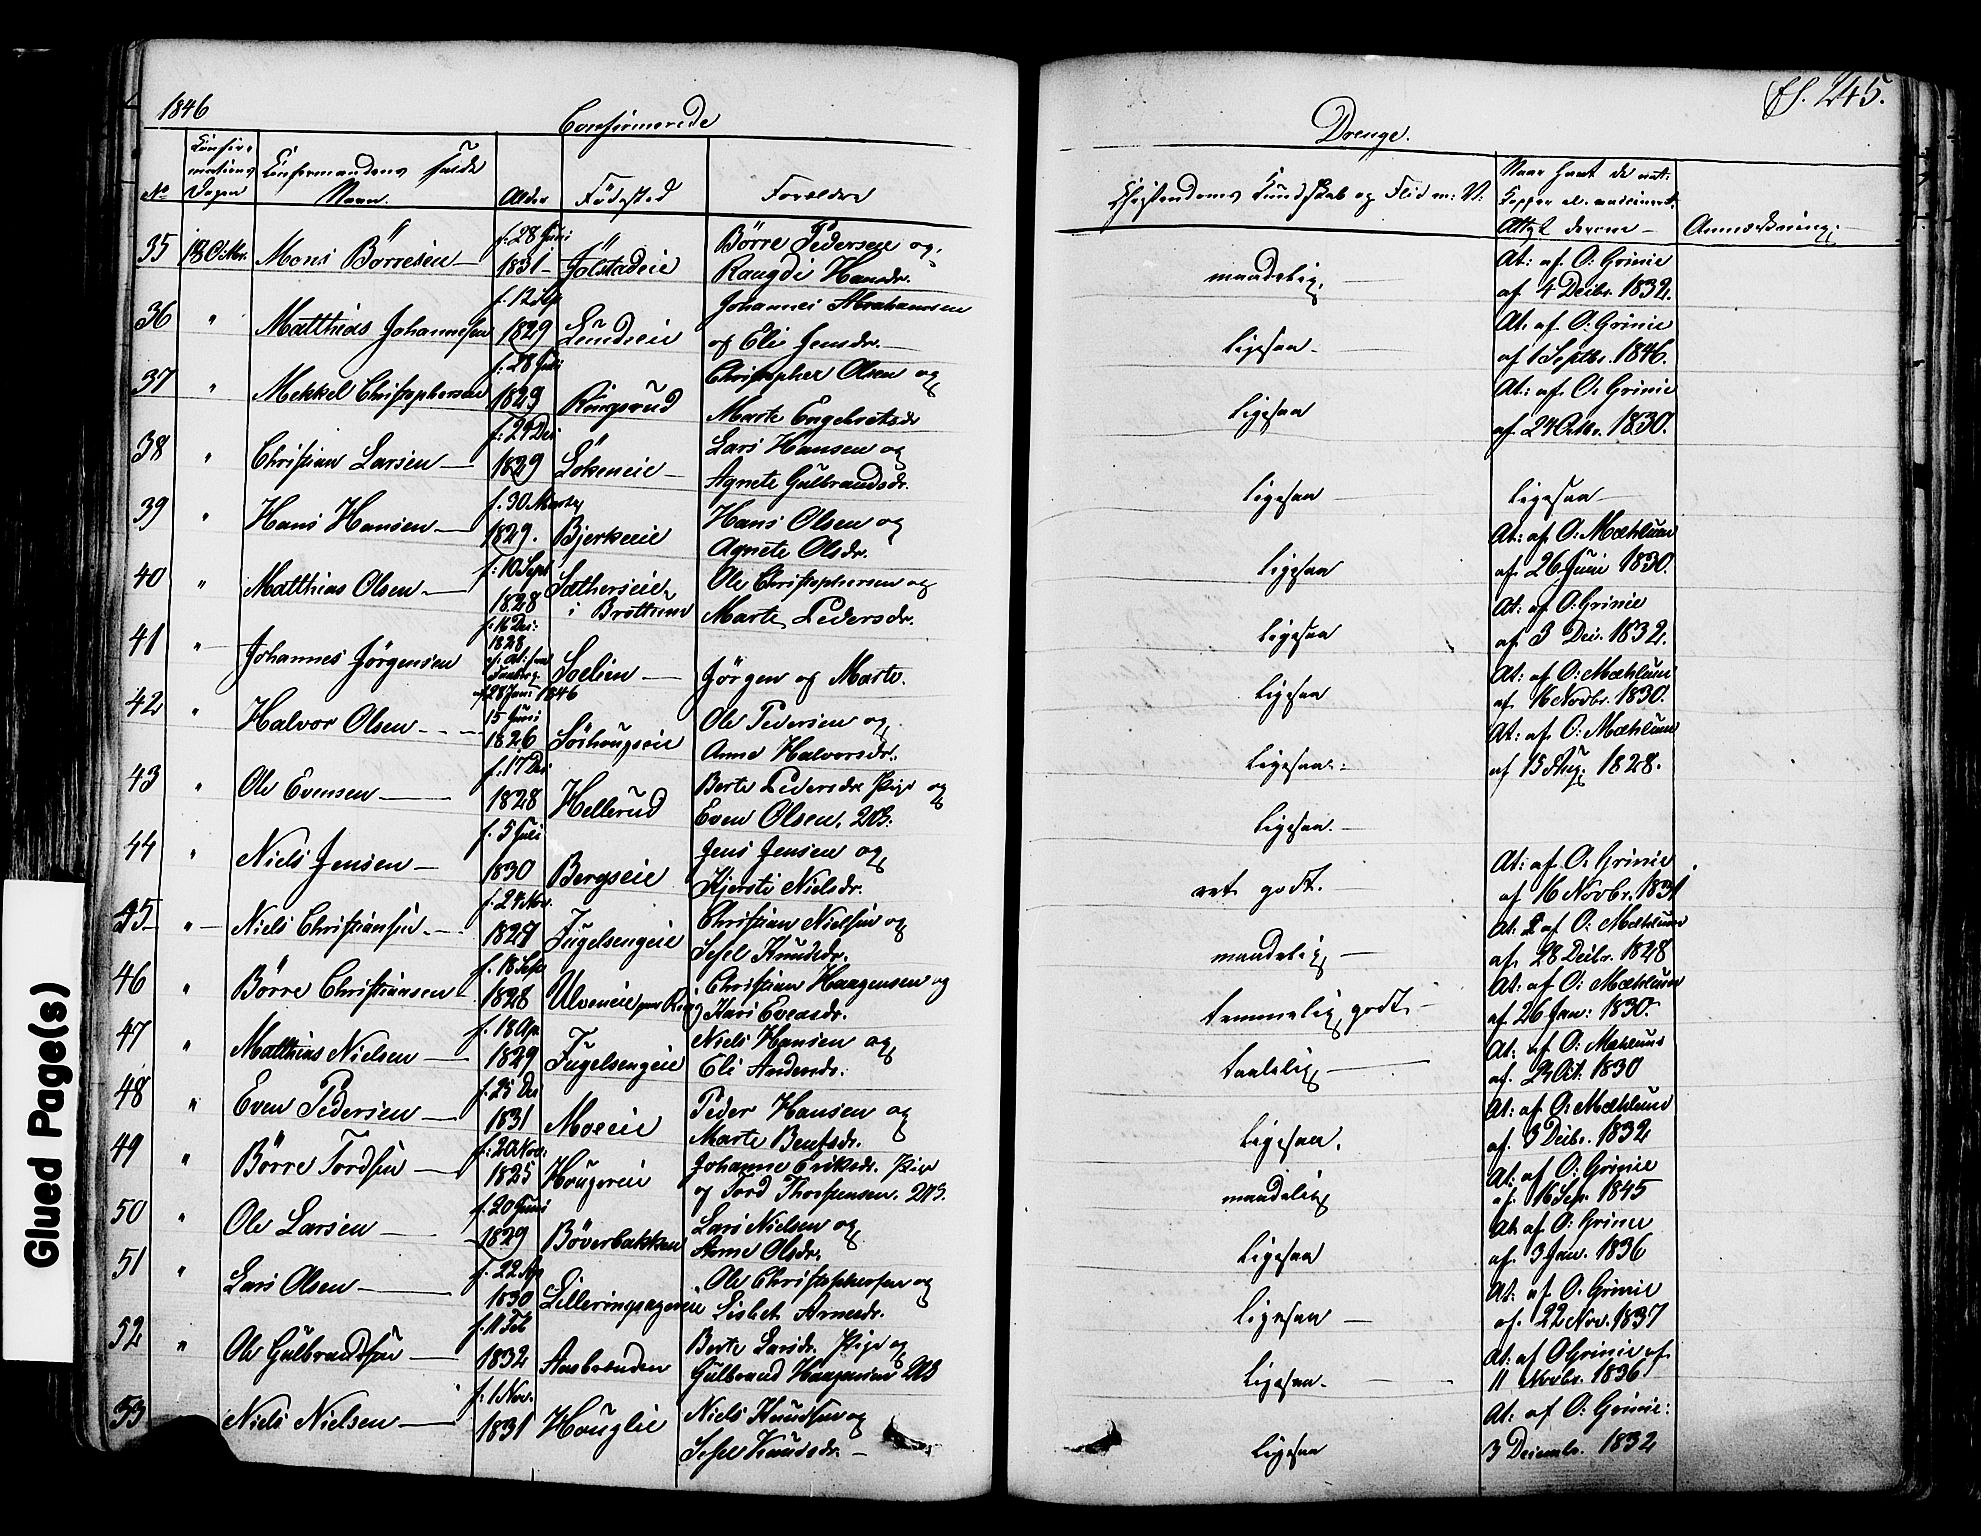 1846
Confirmerede
Drenge.
fS. 245.
No
Confir-
mations
Dagen
Confirmandens fulde
Navn.
Alder
Fødested
Forældre
Christendoms Kundskab og Flid m: V:
Naar havt de nat:
Kopper el. vaccineret.
Attst derom –
Anmærkning:
35 18 Octbr. Mons Börresen f. 28 Juni 1831 – Jölstadeie Börre Pedersen og Rangdi Hansdr. maadelig. At: af O: Grinie af 4 Decbr. 1832.
36 " Matthias Johannesen f. 12 Sep 1829 Lundseie Johannes Abrahamsen og Eli Jensdr. ligesaa – At: af O: Grinie af 1 Septbr. 1846.
37 " Mekkel Christophersen f: 28 Juli 1829 Ringsrud Christopher Olsen og Marte Engebretsdr ligesaa At: af O: Grinie af 24 Octbr. 1830.
38 " Christian Larsen – f: 29 Dec 1829 Lökeneie – Lars Hansen og Agnete Gulbrandsdr. ligesaa ligesaa –
39 " Hans Hansen – f. 30 1829. Bjerkeeie Hans Olsen og Agnete Olsdr. ligesaa At: af O: Mæhlum af 26 Juni 1830.
40 " Matthias Olsen – f: 10 Sept 1828 Sætherseie i Bröttum Ole Christophersen og Marte Pedersdr. ligesaa At: af O: Grinie af 3 Dec. 1832.
41 " Johannes Jørgensen f. 16 Dec: 1828 ef: At: fra Faaberg af 28 Jan: 1846 Soelien – Jörgen og Marte. ligesaa At: af O: Mæhlum af 16 Novbr. 1830.
42 " Halvor Olsen – 15 Juni 1826 Sörhougseie Ole Pedersen og Anne Halvorsdr. ligesaa – At: af O: Mæhlum af 15 Aug: 1828.
43 " Ole Evensen – f. 17 Dec 1828 Hellerud Berte Pedersdr Pige og Even Olsen. ligesaa. –
44 " Niels Jensen – f. 5 Juli 1830 Bergseie Jens Jensen og Kjersti Nielsdr. ret godt. – At: af O: Grinie af 16 Novbr. 1831
45 – " – Niels Christiansen – f. 24 Nov. 1827 Fugelsengeie Christian Nielsen og Sesel Knudsdr. maadelig – At: af O: Mæhlum af 28 Decbr. 1828
46 " Börre Christiansen f. 18 Sept 1828 Ulveneie Christian Haagensen og Kari Evensdr. temmelig godt – At: af O: Mæhlum af 26 Jan: 1830.
47 " Matthias Nielsen – f. 18 Apr. 1829 Fugelsengeie Niels Hansen og Eli Andersdr. taalelig – At: af O: Mæhlum af 1830
48 " Even Pedersen – f. 25 Dec 1831 Moeeie Peder Hansen og Marte Bentsdr. ligesaa. At: af O: Mæhlum af 3 Decbr. 1832
49 " Börre Tordsen – f: 20 Nov: 1825 Hougeeie Johanne Eriksdr. Pige og Tord Thorstensen. maadelig At: af O: Grinie af 16 Sep. 1845
50 " Ole Larsen – f. 20 Juni 1829 Böverbakken Lars Nielsen og Anne Olsdr. ligesaa At af O: Grinie af 3 Jan. 1836
51 " Lars Olsen – f. 22 1830 Lilleringsagereie Ole Christophersen og Lisbet Arnesdr. ligesaa – At: af O. Grinie af. 22 Nov. 1837
52 " Ole Gulbrandsen – f. 11 Feb 1832 Aasbrænden Berte Larsdr. Pige og Gulbrand Haagensen ligesaa – At: af O Grinie af 11 Novbr. 1836
53 Niels Nielsen – f. 1 Nov. 1831 Houglie Niels Knudsen og Sesel Knudsdr. – ligesaa At: af O: Grinie: 3 Decembr. 1832
Glued Page(s)